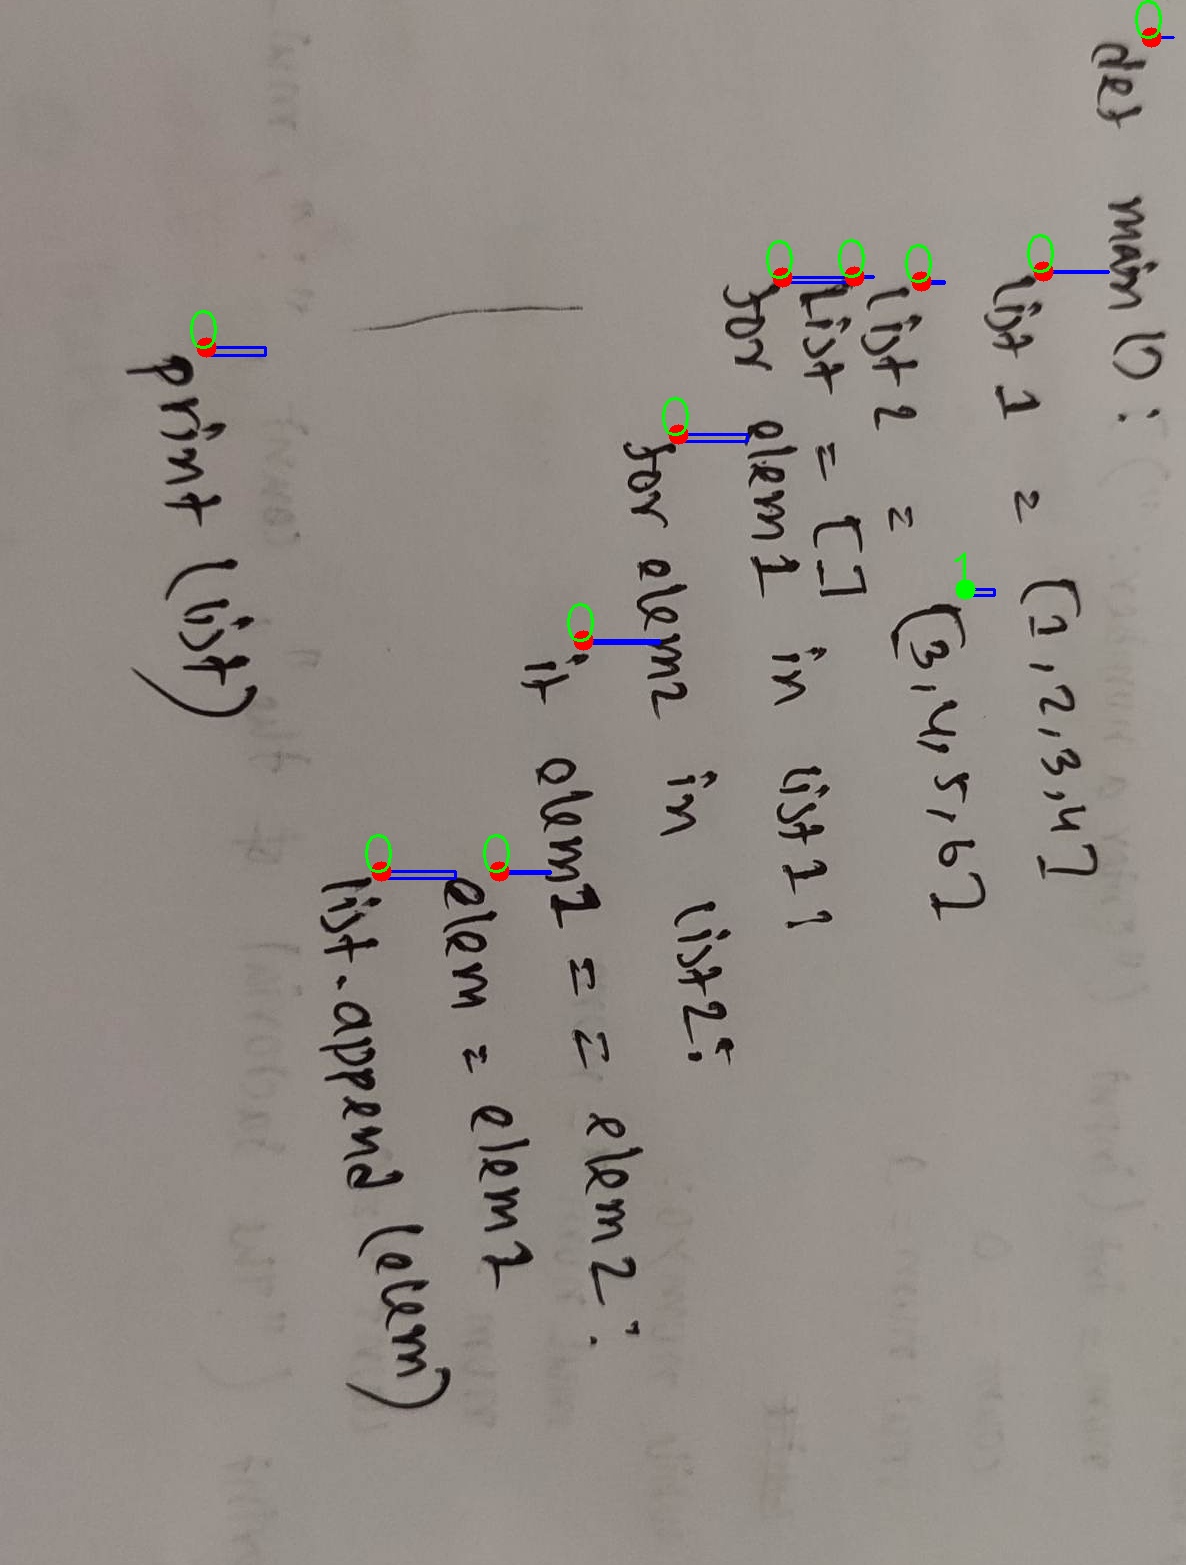 def main():
list 1 = [1,2,3,4]
list 2 = [3,4,5,6]
list = []
for elem1 in list1:
for elem2 in list2:
if elem1 == elem2:
elem = elem1
list.append(elem)
print (list)